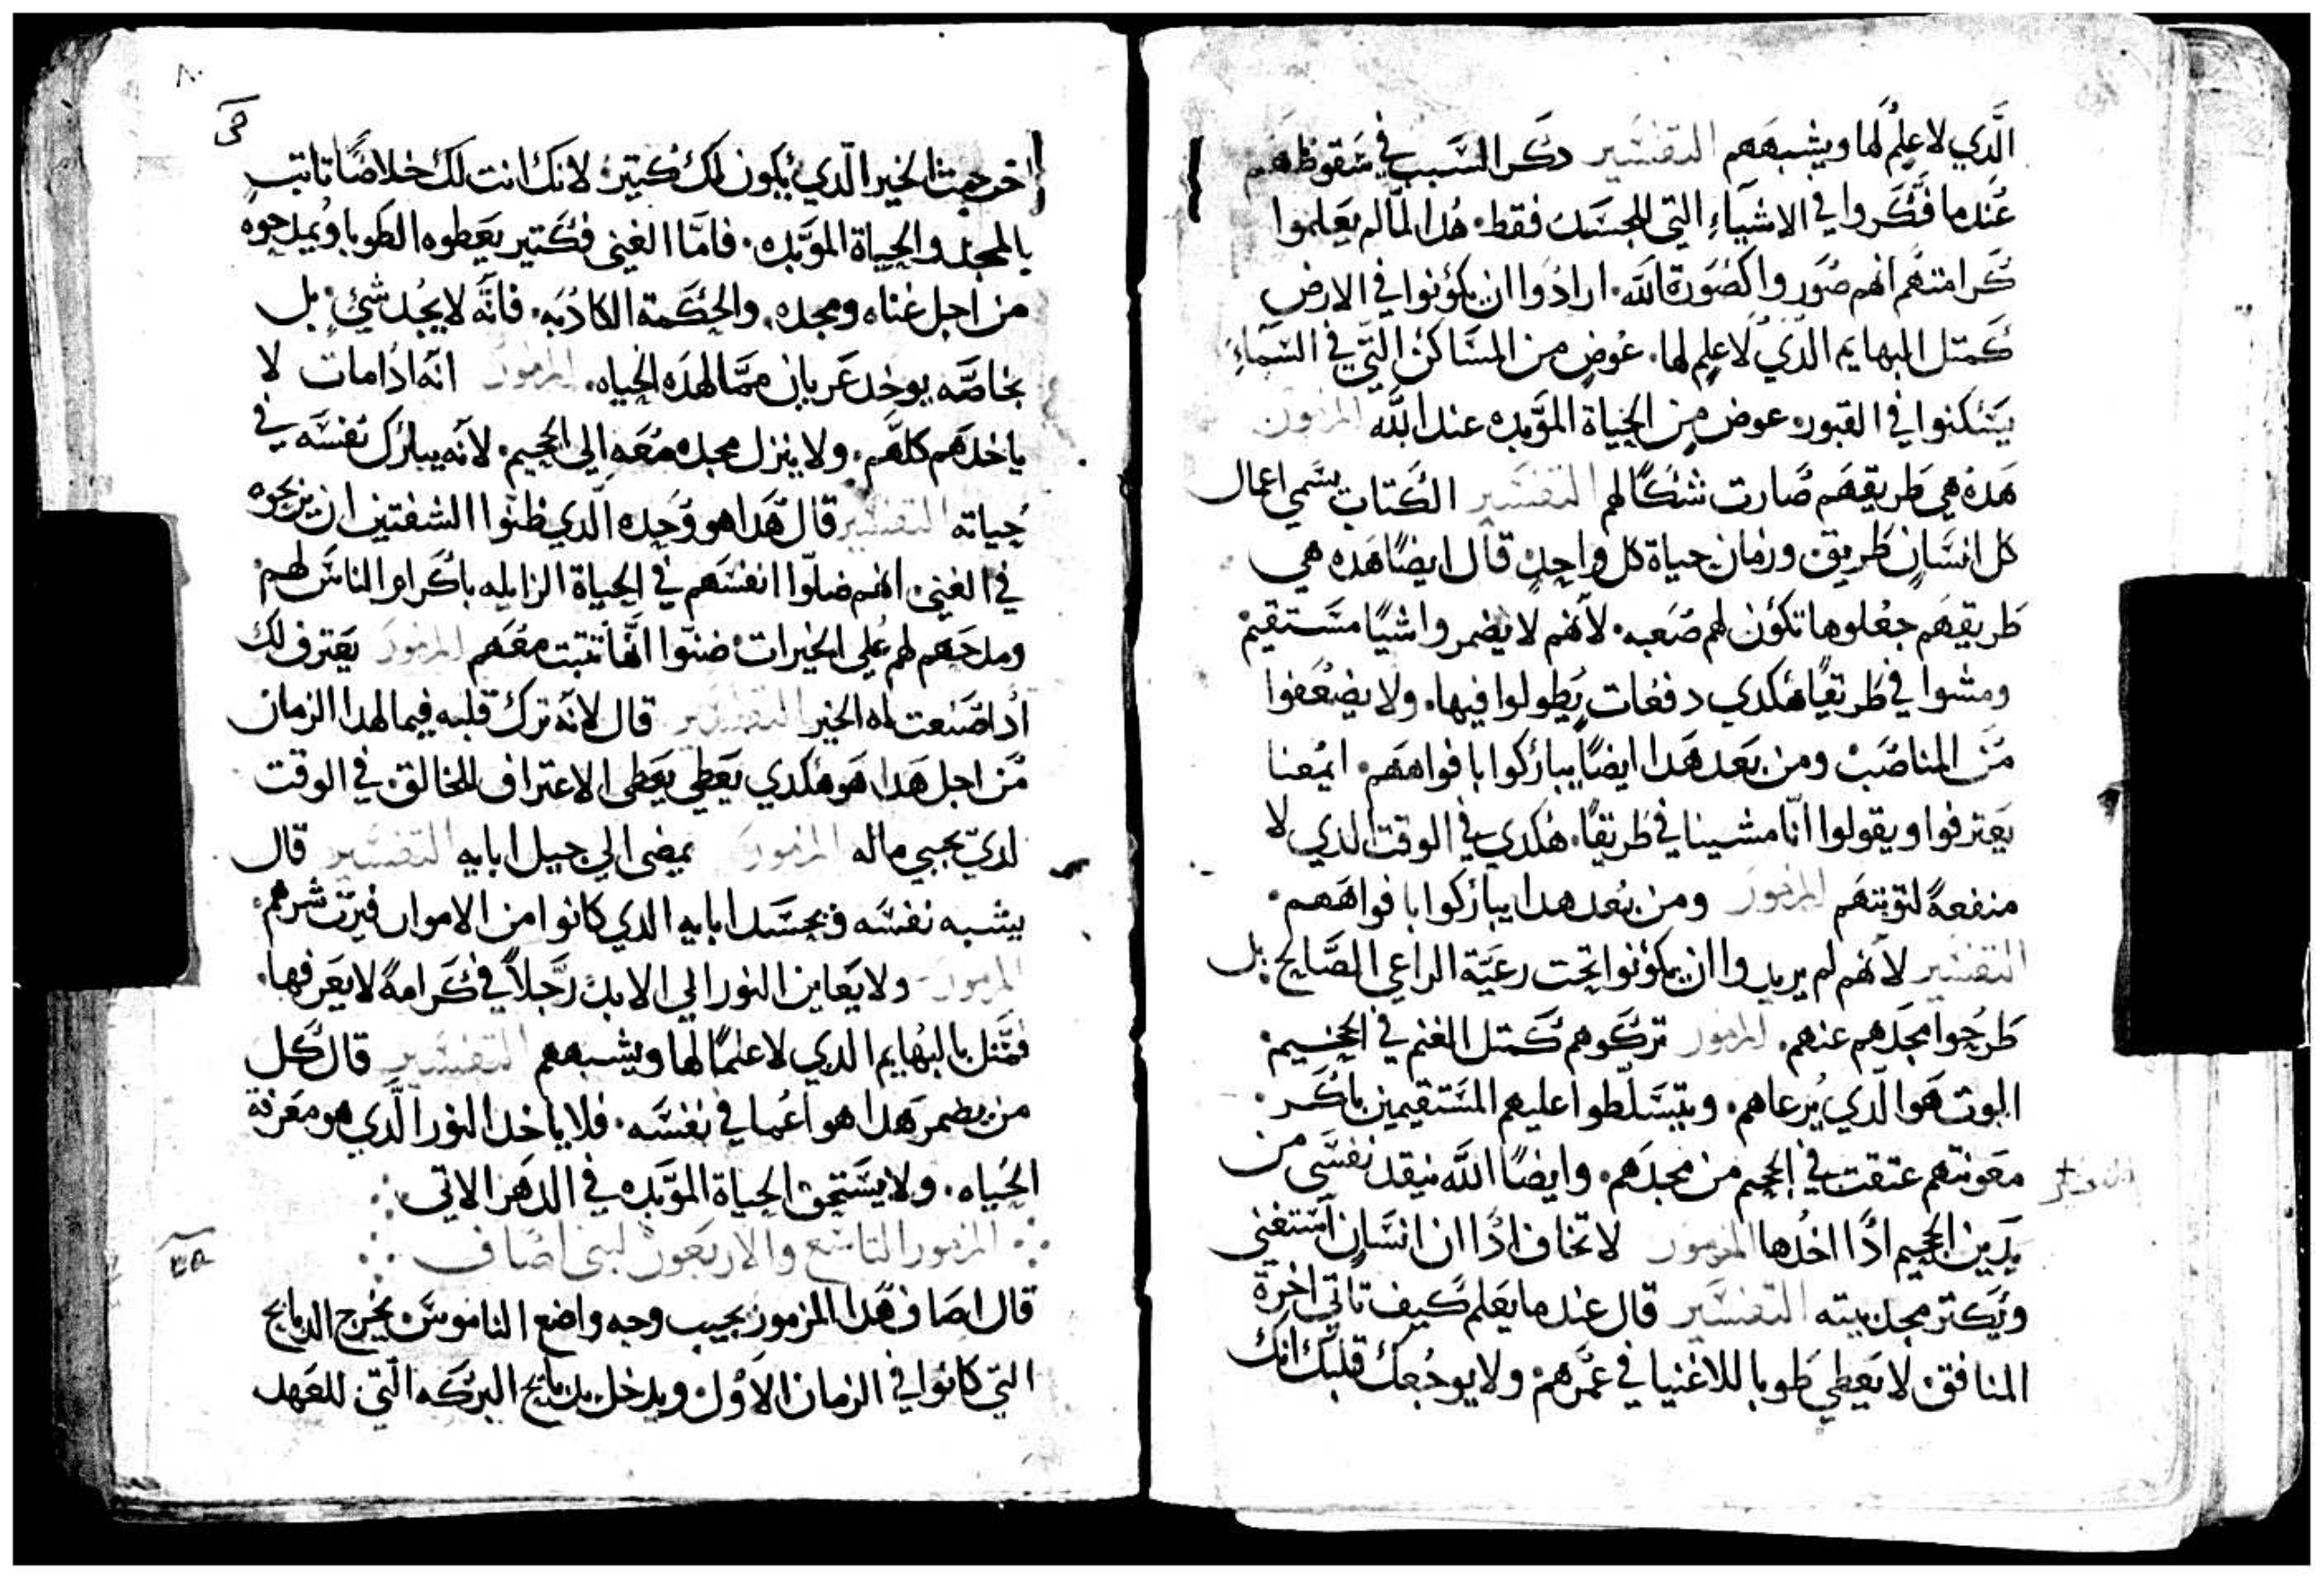 الَّذي لا علم لها ويشبههم التفسير ذكر السبب في سقوطهم
عندما فكروا في الاشيآء التي للجسد فقط. هدا لمّا لم يعلموا
كرامتهم انهم صوروا كصورة الله. ارادوا ان يكونوا في الارض
كمتل البهايم الدي لا علم لها. عوض من المساكن التي في السمآء
يسكنوا في القبور. عوض من الحياة الموبده عند الله المزمور
هده هي طريقهم صارت شكًا لهم التفسير الكتاب يسمي اعمال
كل انسان طريق. وزمان حياة كل واحد. قال ايضًا هده هي
طريقهم جعلوها تكون لهم صعبه. لانهم لا يضمروا شيًا مستقيم
ومشوا في طريقًا هكدي دفعات يطولوا فيها. ولا يضعفوا
من المناصب ومن بعد هدا ايضًا يباركوا بافواههم. ايمعنا
يعترفوا ويقولوا انّا مشينا في طريقًا. هكدي في الوقت الدي لا
منفعةً لتوبتهم المزمور ومن بعد هدا يباركوا بافواههم.
التفسير لانهم لم يريدوا ان يكونوا تحت رعية الراعي الصالح بل
طرحوا مجدهم عنهم. المزمور تركوهم كمتل الغنم في الجحيم.
الموت هوا لّدي يرعاهم. ويتسلّطوا عليهم المستقيمين باكر.
معونتهم عتقت في الجحيم من مجدهم. وايضًا الله ينقد نفسي من
يدين الجحيم ادًا اخدها المزمور لا تخاف ادًا ان انسان استغني
ويكتر مجد بيته التفسير قال عندما يعلم كيف تاتي اخرة
المنافق. لا يعطي طوبا للاغنيا في عمرهم ولا يوجعك قلبك انك
٨٠
اخرجت الخير الّدي يكون لك كتير. لانك انت لك خلاصًا تابت
بالمجد والحياة الموبده. فامّا الغني فكتير يعطوه الطوبا ويمدحوه
من اجل غناه ومجده. والحكمة الكادبه. فانّه لا يجد شي بل
بخاصّه يوخد عريان ممّا لهده الحياه. المزمور انّه ادا مات لا
ياخدهم كلّهم. ولا ينزل مجده معه الي الجحيم. لانه يبارك نفسه في
حياته التفسير قال هدا هو وحده الّدي ظنّوا الشفتين ان يربحوه
في الغني. انهم ضلّوا انفسهم في الحياة الزايله باكرام الناس لهم
ومدحهم لهم علي الخيرات. ضنّوا انّها تتبت معهم المزمور يعترف لك
ادا صنعت له الخير التفسير قال لانه ترك قلبه فيما لهدا الزمان
من اجل هدا هو هكدي يعطي يعطي الاعتراف للخالق. في الوقت
لدي يحيي ماله المزمور يمضي الي جيل ابايه التفسير قال
يشبه نفسه ويحسد ابايه الدي كانوا من الاموات شرهم.
المزمور ولا يعاين النور الي الابد رجلاً في كرامةً لا يعرفها.
فمتل بالبهايم الدي لا علمًا لها ويشبههم التفسير قال كل
من يضمر هدا هو اعما في نفسه. فلا ياخد النور الّدي هو معرفة
الحياه. ولا يستحق الحياة الموبده في الدهر الاتي
المزمور التاسع والاربعون لبني اصاف
قال اصاف هدا المزمور يجيب وجه واضع الناموس. يخرج الدبايح
التي كانوا في الزمان الاول. ويدخل بدبايح البركه التي للعهد